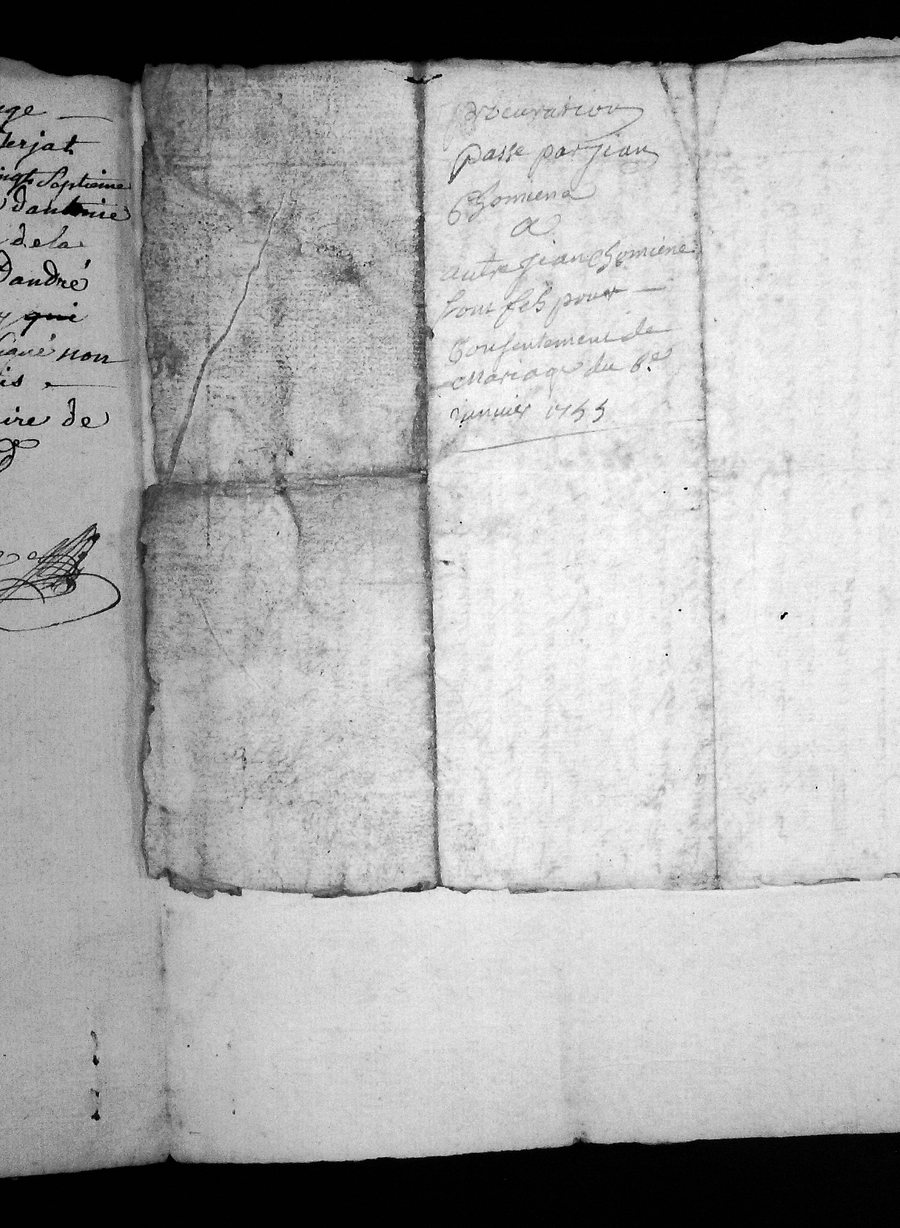 terjat
vingt Septieme
dantonie
dela
Dandré
qui
non
is
ire de
procuration
passe par jian
Chomiene
a
autre jian Chomiene
son fils pour
Consentement de
Mariage du 6e
janvier 1755